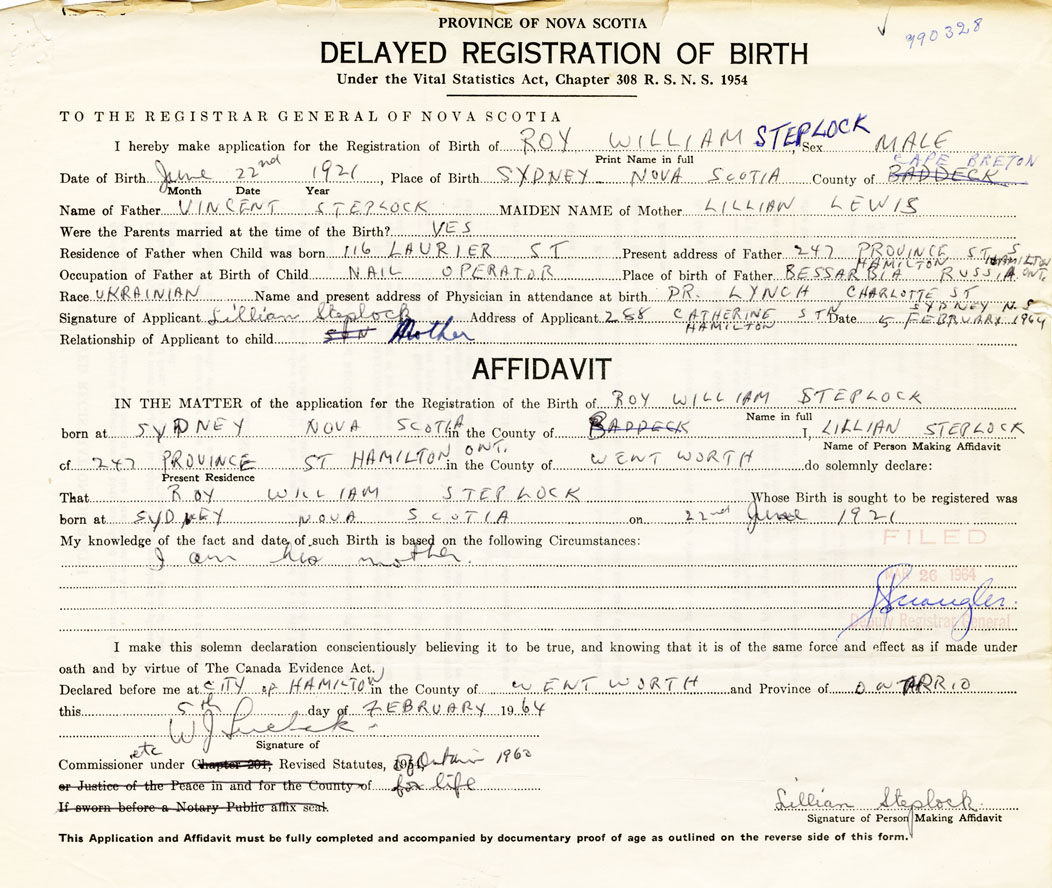 PROVINCE OF NOVA SCOTIA
990328
DELAYED REGISTRATION OF BIRTH
Under the Vital Statistics Act, Chapter 308 R. S. N. S. 1954
TO THE REGISTRAR GENERAL OF NOVA SCOTIA
I hereby make application for the Registration of Birth of ROY WILLIAM STEPLOCK, Sex MALE
Print Name in full
CAPE BRETON
Date of Birth June 22nd 1921, Place of Birth SYDNEY NOVA SCOTIA County of BADDECK
Month Date Year
Name of Father VINCENT STEPLOCK MAIDEN NAME of Mother LILLIAN LEWIS
Were the Parents married at the time of the Birth? YES
Residence of Father when Child was born 116 LAURIER ST Present address of Father 247 PROVINCE ST. S
HAMILTON HAMILTON ONT.
Occupation of Father at Birth of Child NAIL OPERATOR Place of birth of Father BESSARBIA RUSSIA
Race UKRAINIAN Name and present address of Physician in attendance at birth DR. LYNCH CHARLOTTE ST
SYDNEY N.S
Signature of Applicant Lillian Steplock Address of Applicant 288 CATHERINE ST N Date 5 FEBRUARY 1964
HAMILTON
Relationship of Applicant to child SON Mother
AFFIDAVIT
IN THE MATTER of the application for the Registration of the Birth of ROY WILLIAM STEPLOCK
Name in full
born at SYDNEY NOVA SCOTIA in the County of BADDECK I, LILLIAN STEPLOCK
Name of Person Making Affidavit
of 247 PROVINCE ST HAMILTON ONT. in the County of WENTWORTH do solemnly declare:
Present Residence
That ROY WILLIAM STEPLOCK Whose Birth is sought to be registered was
born at SYDNEY NOVA SCOTIA on 22nd June 1921
My knowledge of the fact and date of such Birth is based on the following Circumstances:
FILED
I am his mother.
MAR 26 1964
Deputy Registrar General
I make this solemn declaration conscientiously believing it to be true, and knowing that it is of the same force and effect as if made under
oath and by virtue of The Canada Evidence Act.
Declared before me at CITY of HAMILTON in the County of WENTWORTH and Province of ONTARRIO
this 5th day of FEBRUARY 1964
Signature of
etc
Commissioner under Chapter 201, Revised Statutes, 1951, of Ontario 1960
or Justice of the Peace in and for the County of for life
If sworn before a Notary Public affix seal.
Lillian Steplock
Signature of Person Making Affidavit
This Application and Affidavit must be fully completed and accompanied by documentary proof of age as outlined on the reverse side of this form.